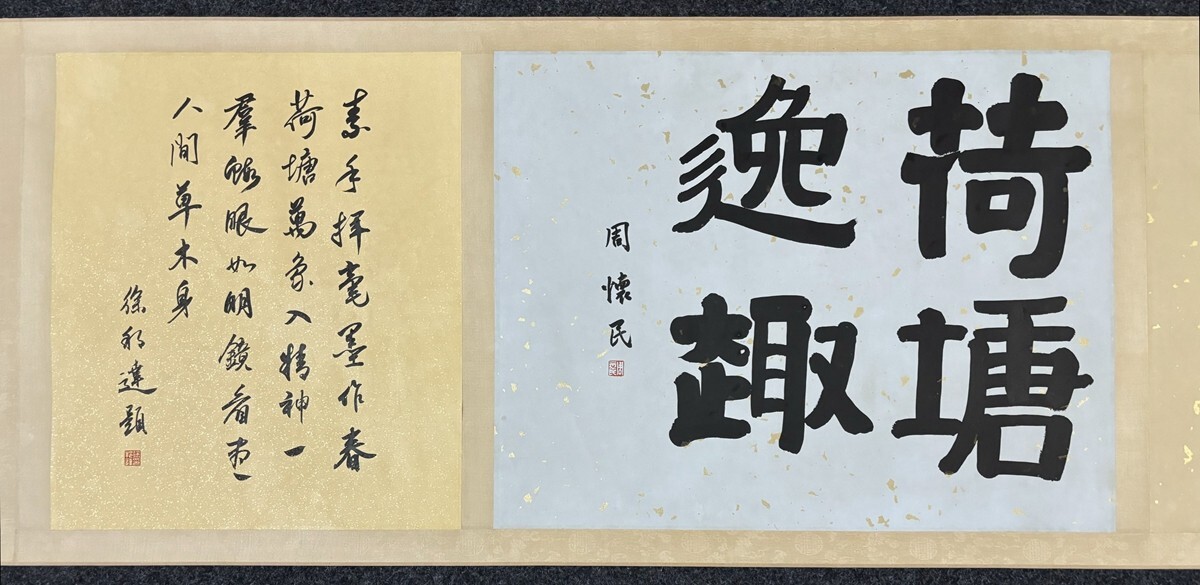 荷塘
逸趣
周懷民
素手揮毫墨作春
荷塘萬象入精神一
羣眼如明鏡看盡
人間草木身
徐邦達題